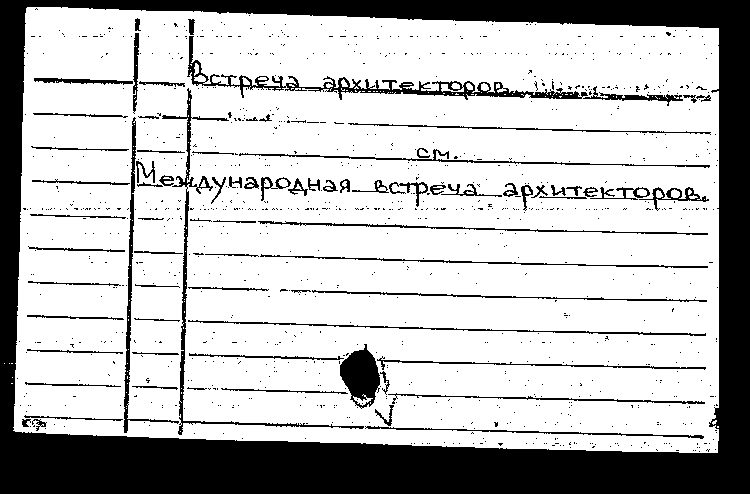 Встреча архитекторов.
см.
Международная встреча архитекторов.